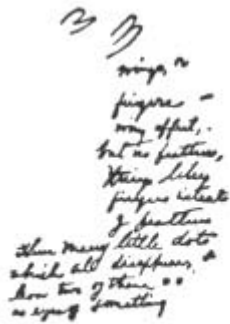 wings, or
fingers -
way offset, -
but no feathers,
things like
fingers instead
of feathers
then many little dots
which all disappears, &
how two of them ..
as eyes of something